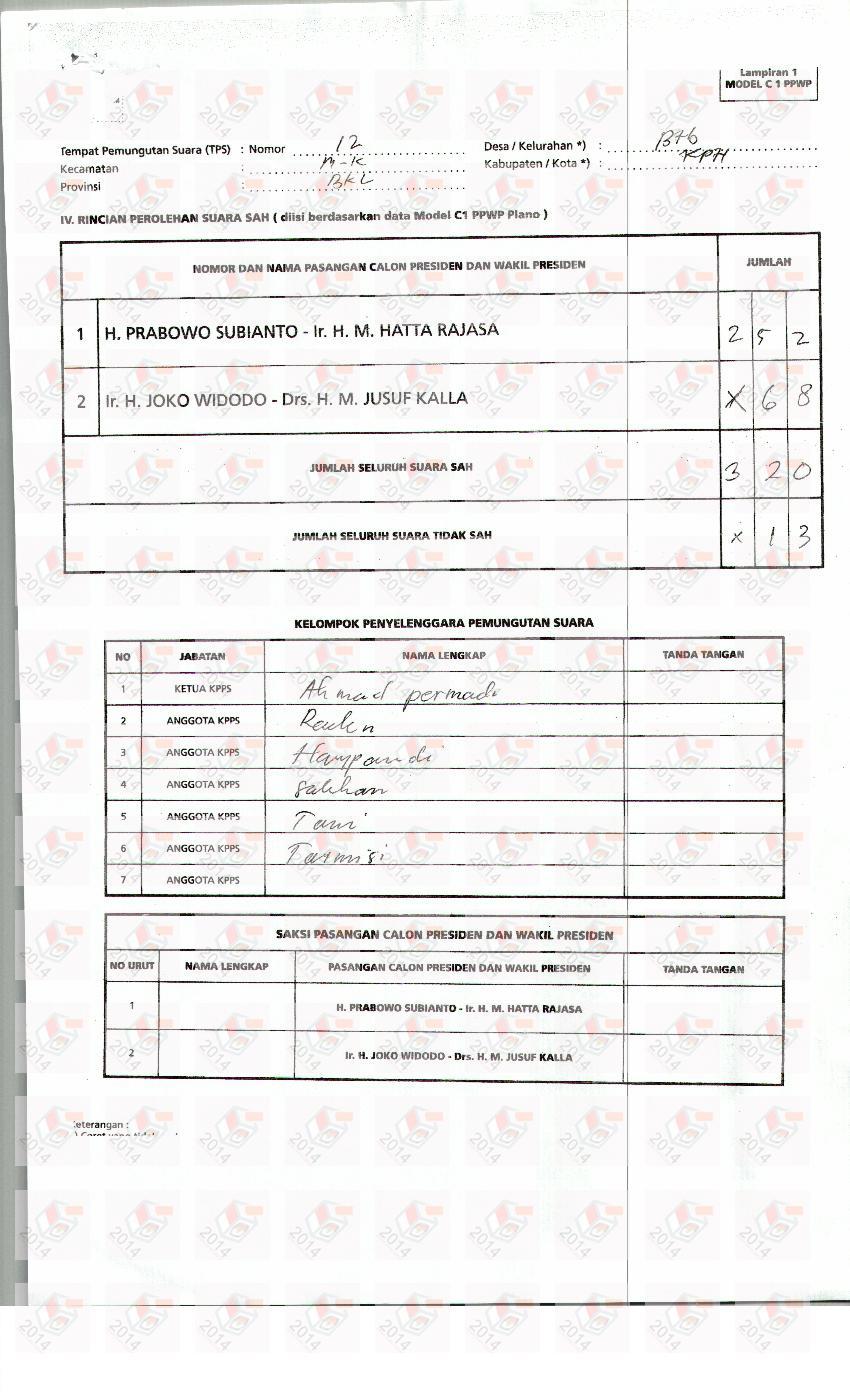 Lampiran 1
MODEL C 1 PPWP
Tempat Pemungutan Suara (TPS) : Nomor 12 Desa / Kelurahan *) :
Kecamatan : M-K Kabupaten / Kota *) : KPH
Provinsi : BKL
IV. RINCIAN PEROLEHAN SUARA SAH ( diisi berdasarkan data Model C1 PPWP Plano )
NOMOR DAN NAMA PASANGAN CALON PRESIDEN DAN WAKIL PRESIDEN JUMLAH
1 H. PRABOWO SUBIANTO - Ir. H. M. HATTA RAJASA 2 5 2
2 Ir. H. JOKO WIDODO - Drs. H. M. JUSUF KALLA X 6 8
JUMLAH SELURUH SUARA SAH 3 2 0
JUMLAH SELURUH SUARA TIDAK SAH x 1 3
KELOMPOK PENYELENGGARA PEMUNGUTAN SUARA
NO JABATAN NAMA LENGKAP TANDA TANGAN
1 KETUA KPPS Ahmad permadi
2 ANGGOTA KPPS
3 ANGGOTA KPPS Haypandi
4 ANGGOTA KPPS Salihan
5 ANGGOTA KPPS Tami
6 ANGGOTA KPPS Tarmisi
7 ANGGOTA KPPS
SAKSI PASANGAN CALON PRESIDEN DAN WAKIL PRESIDEN
NO URUT NAMA LENGKAP PASANGAN CALON PRESIDEN DAN WAKIL PRESIDEN TANDA TANGAN
1 H. PRABOWO SUBIANTO - Ir. H. M. HATTA RAJASA
2 Ir. H. JOKO WIDODO - Drs. H. M. JUSUF KALLA
eterangan :
2014